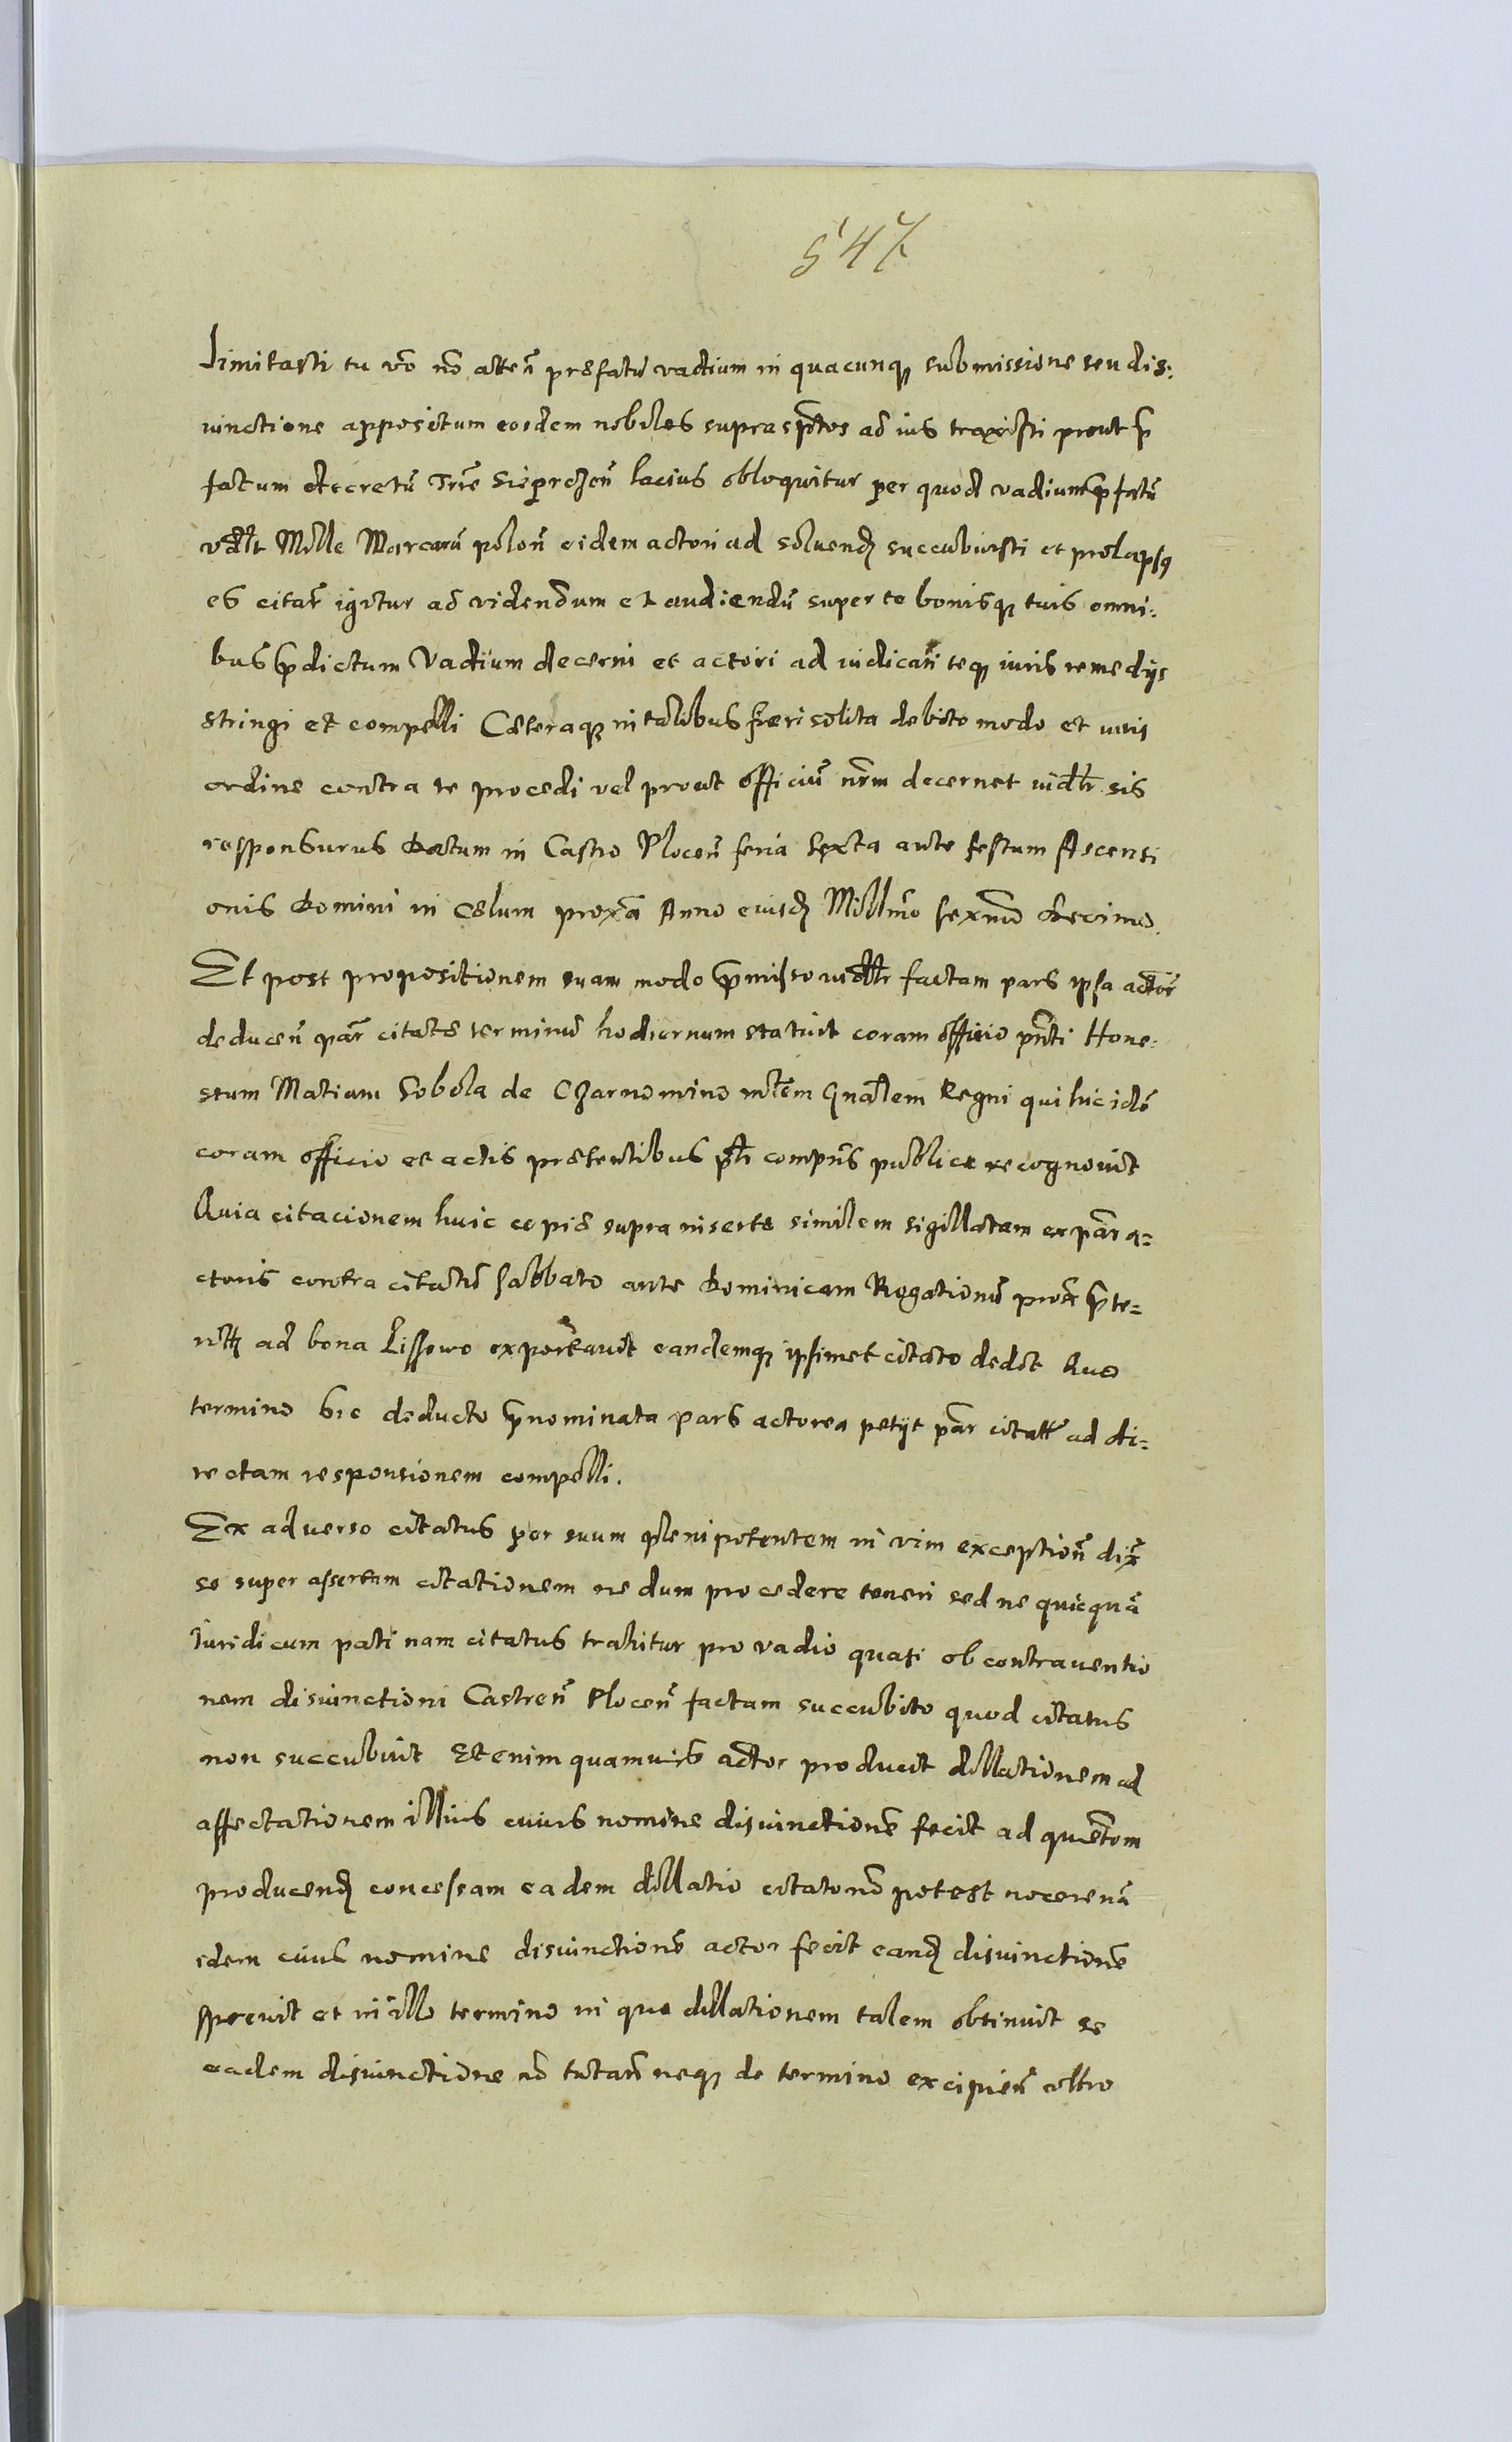 547
limitasti tu vō nō atteñ præfatū vadium in quacunqꝫ submissione seu dis:
iunctione appositum eosdem nobiles suprascptos ad ius traxisti prout p̄
fatum decretū Trñe Sieprczeñ lacius obloquitur per quod vadium p̄fatū
vdlt Mille Marcarū poloñ eidem actori ad soluendꝫ succubuisti et prolapsꝯ
es citar̃ igitur ad videndum et audiendū super te bonisqꝫ tuis omni:
bus p̄dictum Vadium decerni et actori ad iudicari teqꝫ iuris remedijs
stringi et compelli Cæteraqꝫ in talibus fieri solita debito modo et iuris
ordine contra te procedi vel prout officiū nr̄m decernet iudr̃ sis
responsurus Datum in Castro Ploceñ feria Sexta ante festum Ascensi
onis Domini in Cælum proxã Anno eiusdꝫ Millmo sexmo Decimo.
Et post propositionem suam modo p̄misso iudr̃ factam pars ipsa actor̃
deduceñ par̃ citatæ terminū hodiernum statuit coram officio pñti Hone:
stum Matiam Sobola de Czarnomino mr̄em Gnalem Regni qui hic idē
coram officio et actis præsentibus plr̃ compñs publice recognouit
Quia citacionem huic copiæ supra insertæ similem sigillatam ex par̃ a=
ctoris contra citatū Sabbato ante Dominicam Rogationū prox̃ p̄te=
ritꝫ ad bona Lissewo exportauit eandemqꝫ ipsimet citato dedit Quo
termino sic deducto p̄nominata pars actorea petijt par̃ citatã ad di=
rectam responsionem compelli.
Ex aduerso citatus per suum plenipotentem in vim exceptioñ dix̃
se super assertam citationem ne dum procedere teneri sed ne quicquā
Iuridicum pati nam citatus trahitur pro vadio quasi ob contrauentio
nem disiunctioni Castreñ Ploceñ factam succubito quod citatus
non succubuit Etenim quamuis actor producit dillationem ad
affectationem illius cuius nomine disiunctionē fecit ad quietōm
producendꝫ concessam eadem dillatio citato nō potest nocere nā
idem cuius nomine disiunctionē actor fecit eandꝫ disiunctionē
spreuit et in illo termino in quo dillationem talem obtinuit se
eadem disiunctione nō tutañ neqꝫ de termino excipieñ vltro